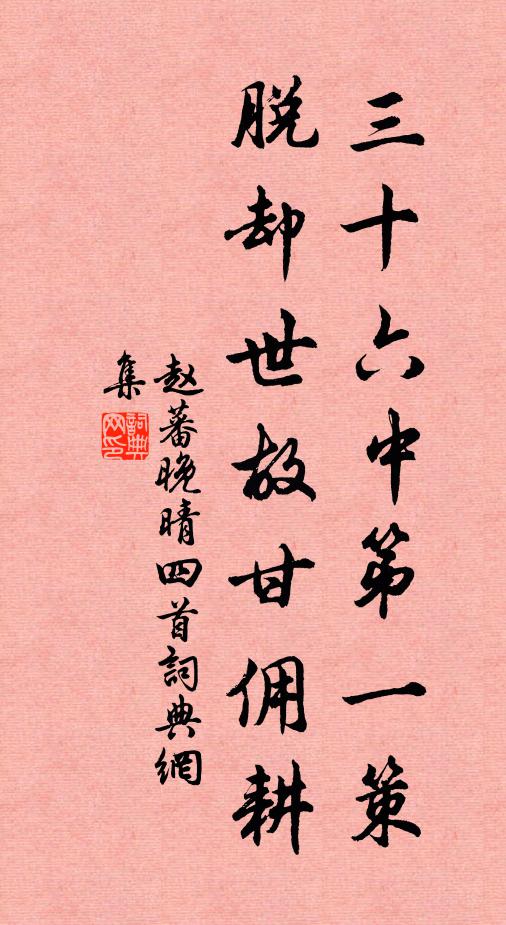 三十六中第一策
脱却世故甘佣耕
赵蕃晚晴四首詞典網
集
詞典网印